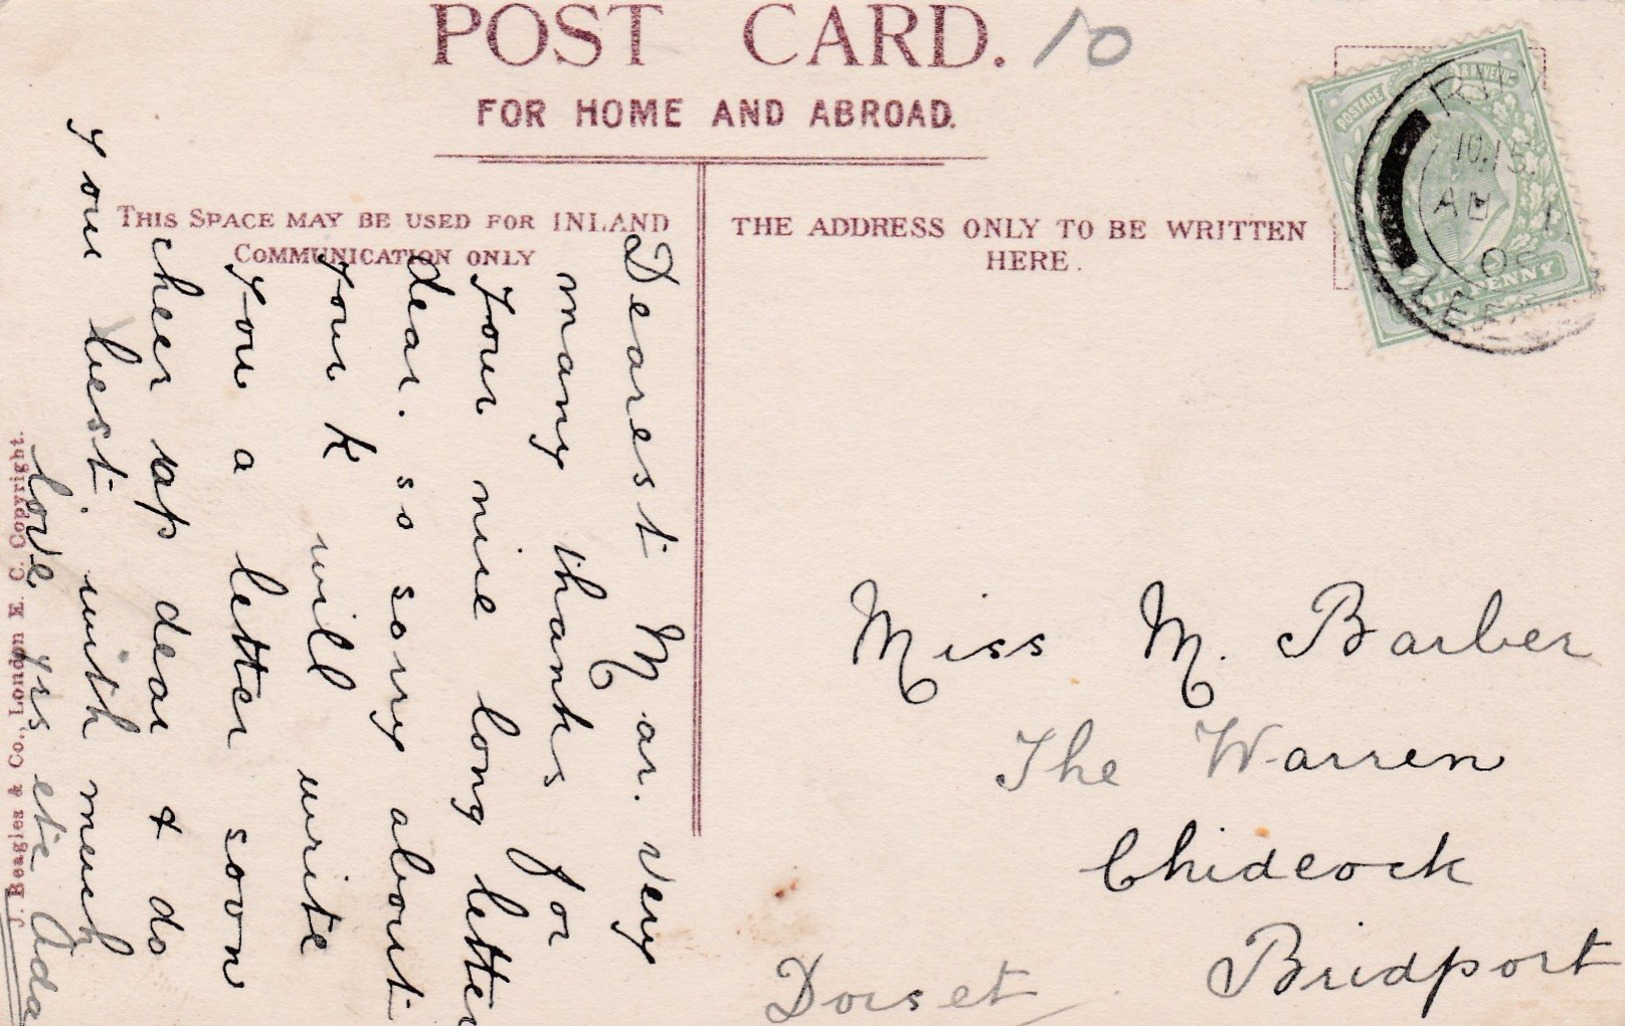 POST CARD. 10
FOR HOME AND ABROAD.
THIS SPACE MAY BE USED FOR INLAND
COMMUNICATION ONLY
THE ADDRESS ONLY TO BE WRITTEN
HERE.
POSTAGE
10.15
HALFPENNY
Dearest Mar. Very
many thanks for
your nice long letter
dear. so sorry about
your k will write
you a letter soon
cheer up dear & do
your best. with much
love yrs etc Ada
Miss M. Barber
The Warren
Chideock
Bridport
Dorset
J. Beagles & Co., London E. C. Copyright.